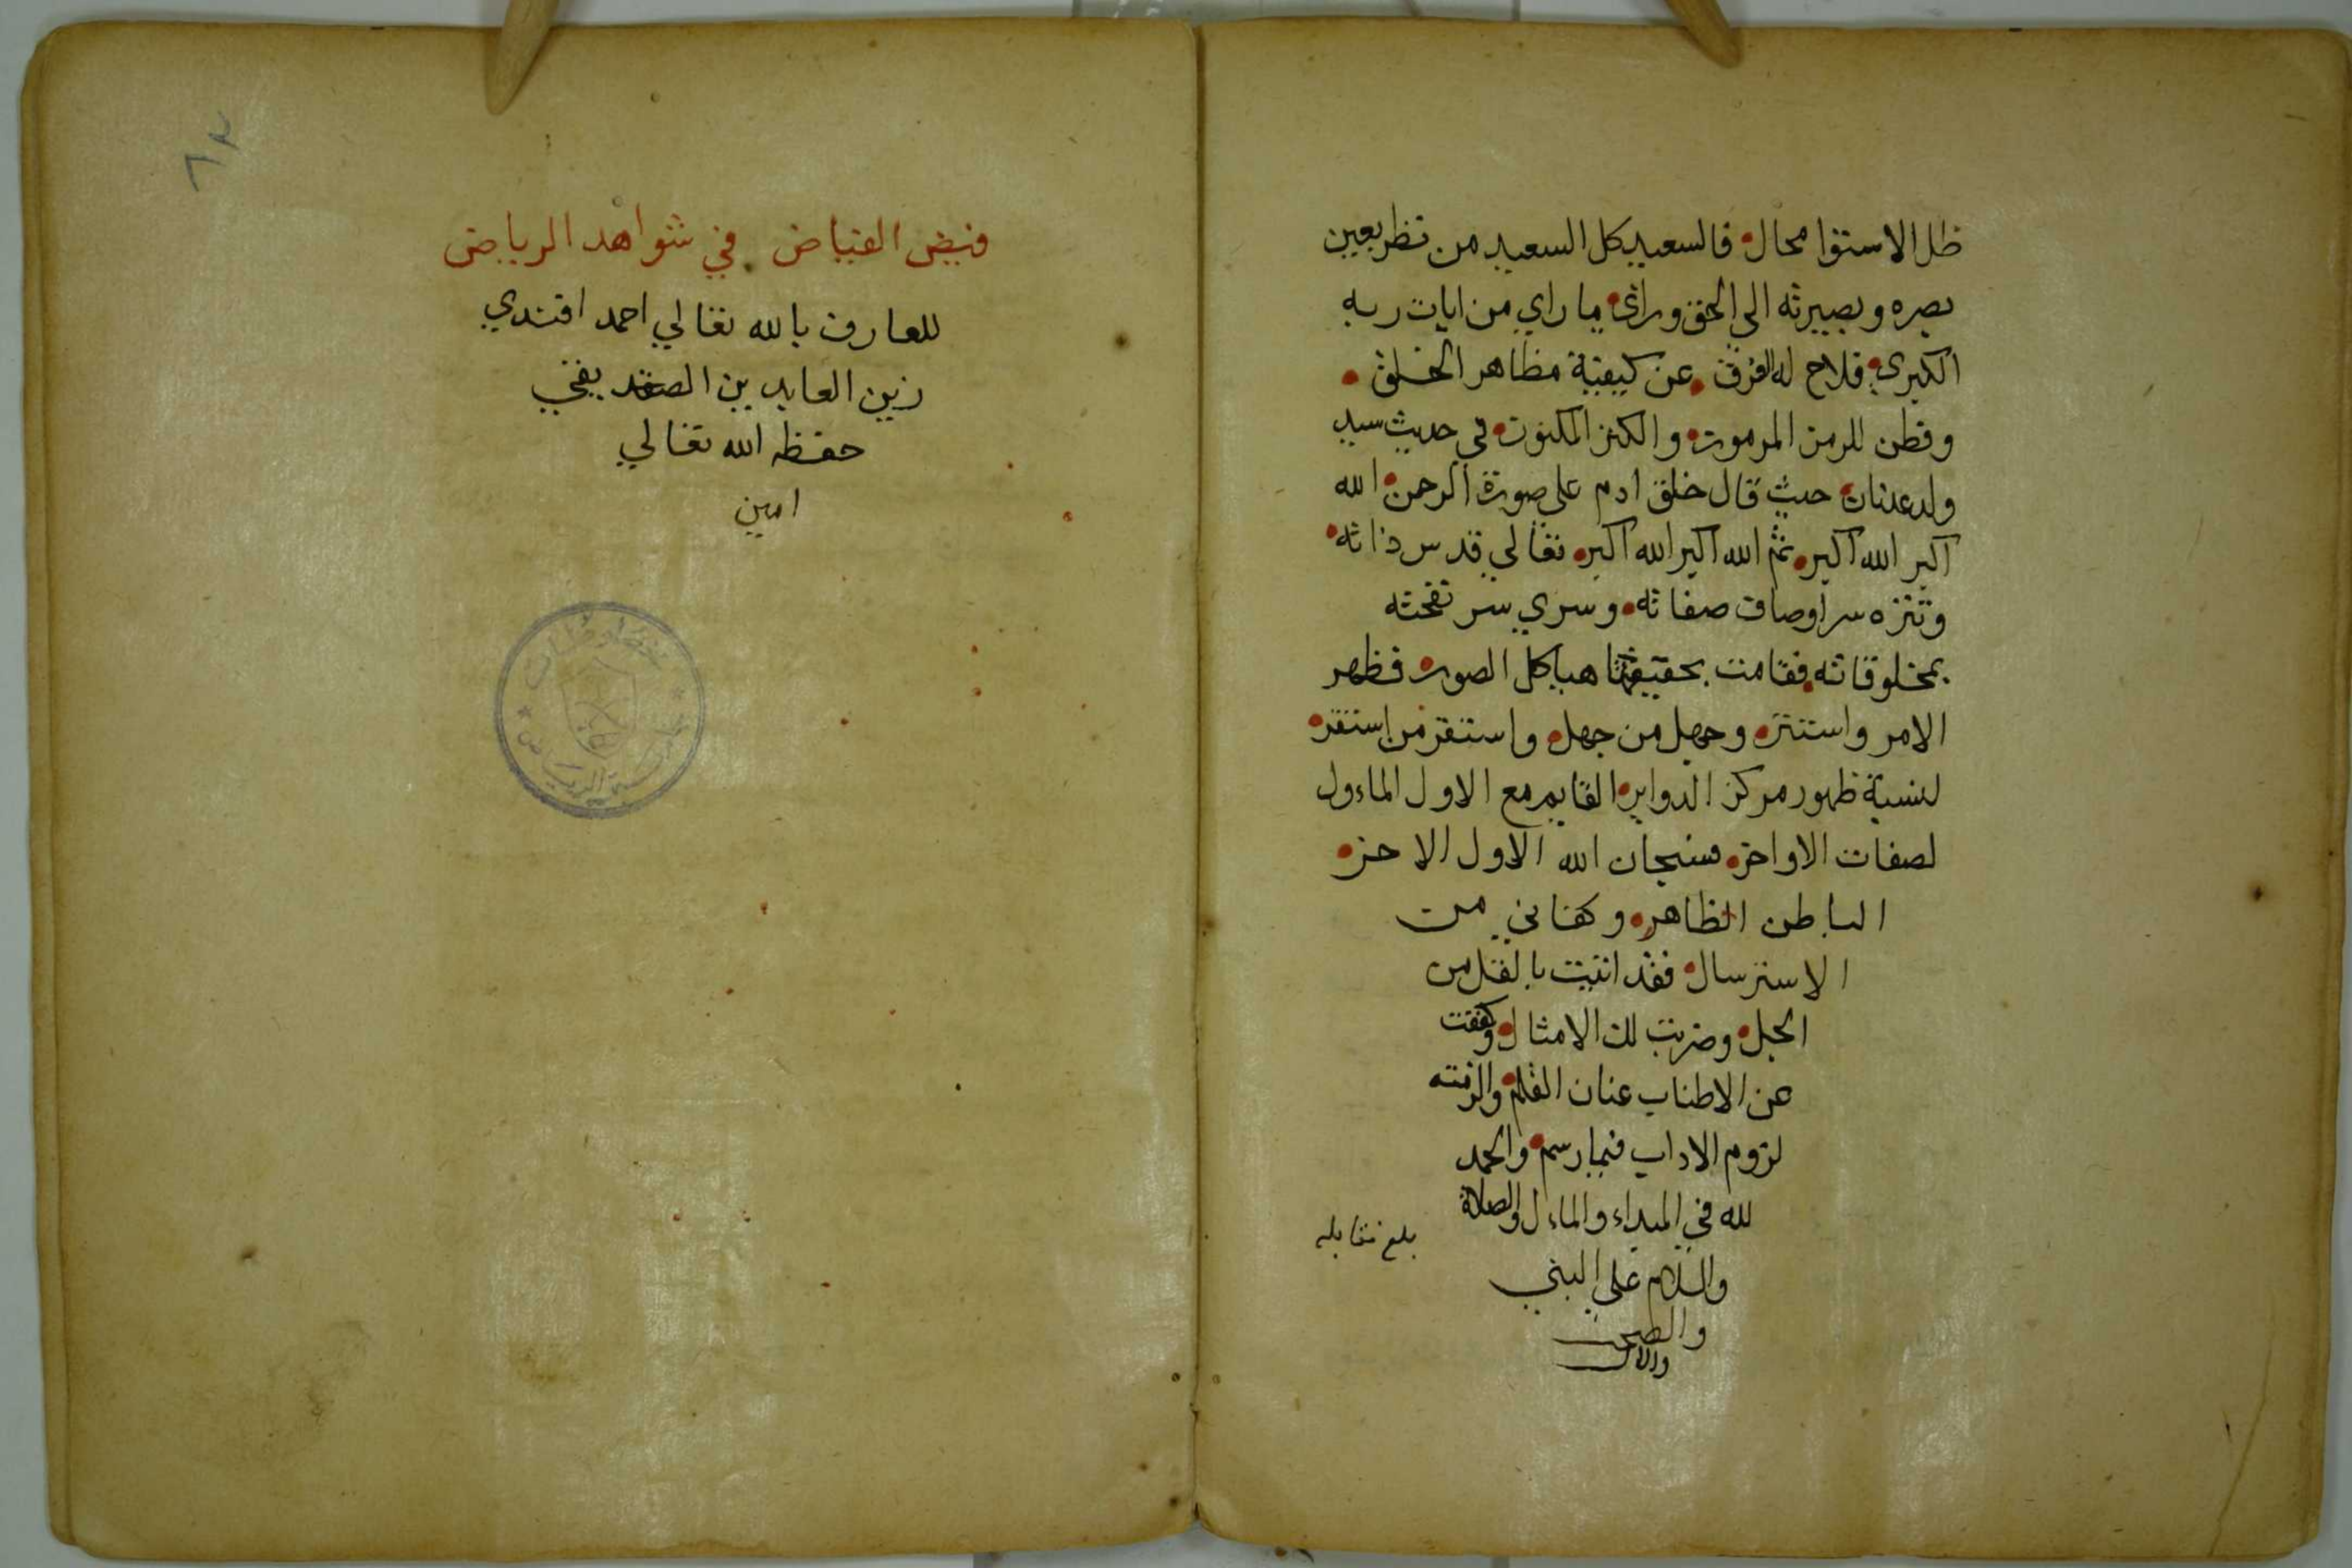 ظل الاستوا محال فالسعيد كل السعيد من نظر بعين
بصره وبصيرته الى الحق وراى ما راي من ايات ربه
الكبرى فلاح له الفرق عن كيفية مظاهر الخلق
وفطن للرمز المرموز والكنز المكنوز في حديث سيد
ولد عدنان حيث قال خلق ادم على صورة الرحمن الله
اكبر الله اكبر ثم الله اكبر الله اكبر تعالي قدس ذاته
وتنزه سر اوصاف صفاته وسري سر نفحته
بمخلوقاته فقامت بحقيقتها هياكل الصور فظهر
الامر واستتر وجهل من جهل واستقر من استقر
لنسبة ظهور مركز الدواير القايم مع الاول الماءول
لصفات الاواخر فسبحان الله الاول الاخر
الباطن الظاهر وكفاني من
الاسترسال فقد اتيت بالقل من
الجل وضربت لك الامثال وكففت
عن الاطناب عنان القلم والزمته
لزوم الاداب فيما رسم والحمد
لله في المبداء والماءل والصلاة
والسلام على النبي
والصحب
والال
بلغ مقابله
٨٢
فيض الفياض في شواهد الرياض
للعارف بالله تعالي احمد افندي
زين العابدين الصفديفي
حفظه الله تعالي
امين
مخطوطات
الرياض